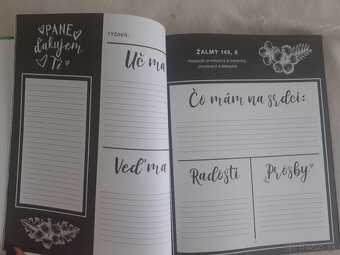 PANE
ďakujem
Ti
TÝŽDEŇ:
Uč ma
Veď ma
ŽALMY 145, 8
Hospodin je milostivý a milosrdný,
zhovievavý a láskyplný.
Čo mám na srdci:
Radosti
Prosby